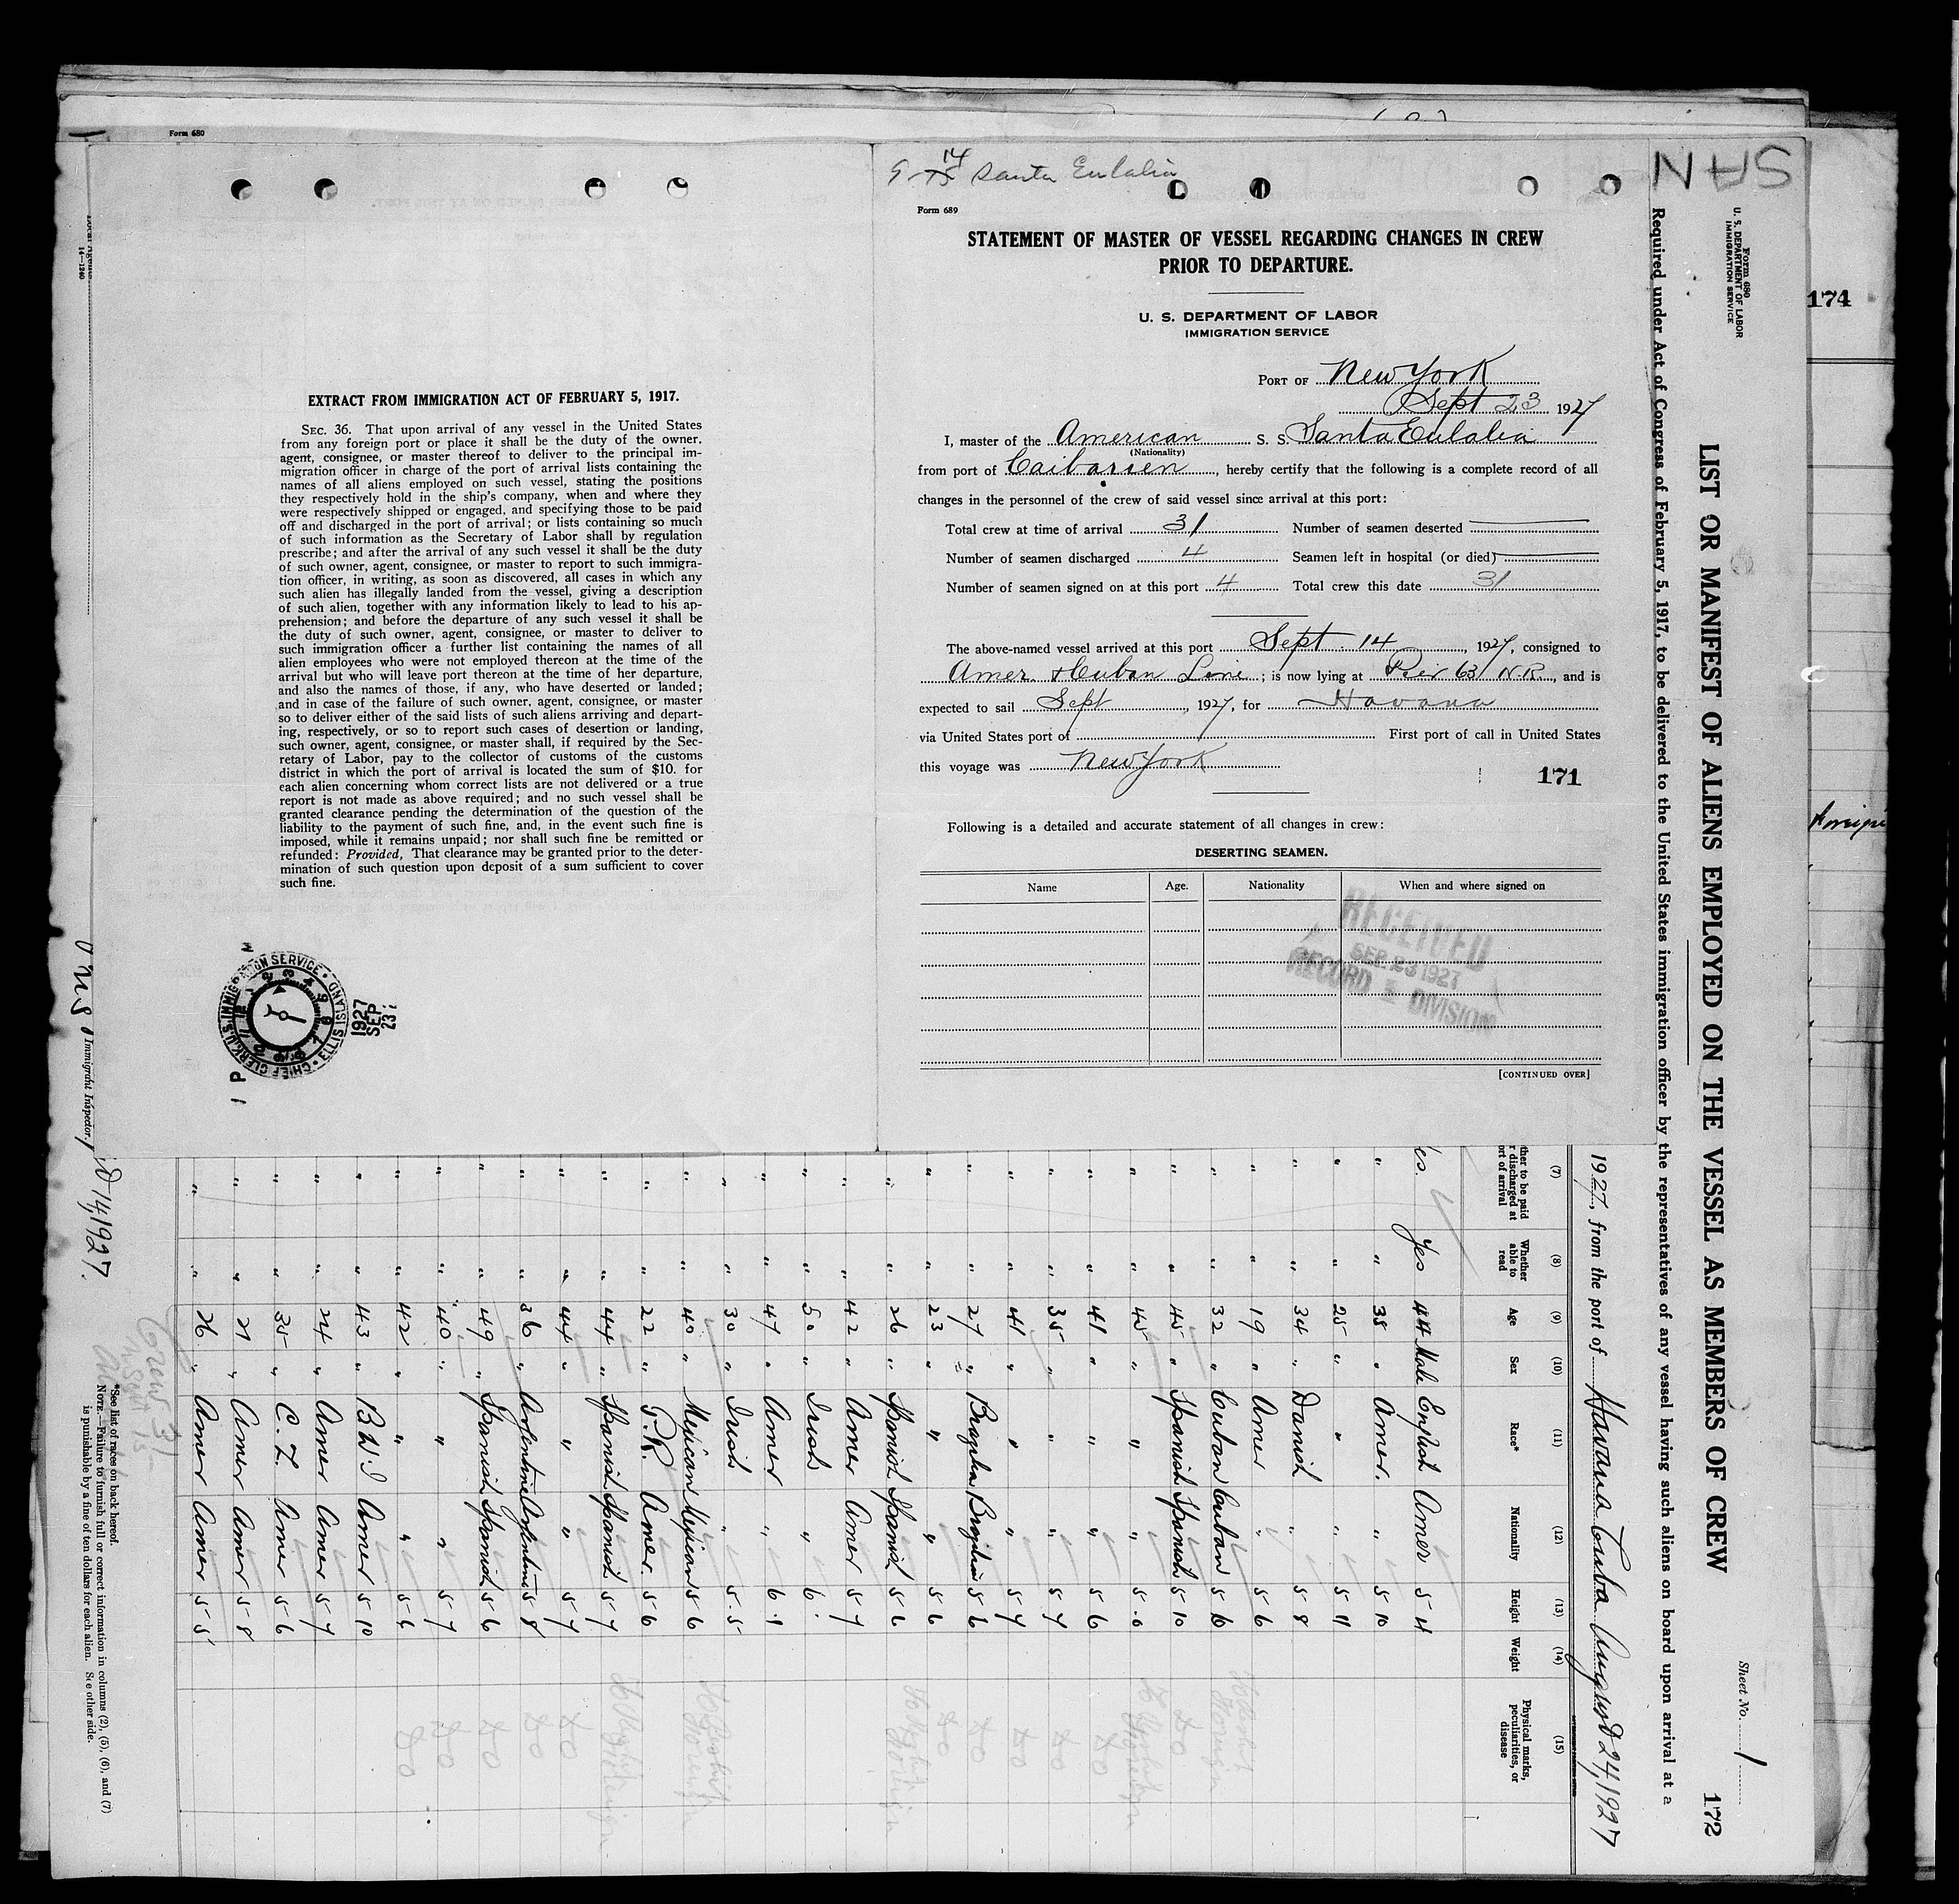 174
SAN
Form 680
9-15 14 Santa Eulalia
Form 689
STATEMENT OF MASTER OF VESSEL REGARDING CHANGES IN CREW
PRIOR TO DEPARTURE.
U. S. DEPARTMENT OF LABOR
IMMIGRATION SERVICE
PORT OF New York
Sept 23 1927
I, master of the American S. S. Santa Eulalia
(Nationality)
from port of Caibarien, hereby certify that the following is a complete record of all
changes in the personnel of the crew of said vessel since arrival at this port:
Total crew at time of arrival 31 Number of seamen deserted
Number of seamen discharged 4 Seamen left in hospital (or died)
Number of seamen signed on at this port 4 Total crew this date 31
The above-named vessel arrived at this port Sept. 14, 1927, consigned to
Amer & Cuban Line; is now lying at Pier 63 N.R., and is
expected to sail Sept, 1927, for Havana
via United States port of First port of call in United States
this voyage was New York
171
Following is a detailed and accurate statement of all changes in crew:
DESERTING SEAMEN.
Name Age. Nationality When and where signed on
RECEIVED
SEP. 23 1927
RECORD DIVISION
[CONTINUED OVER]
EXTRACT FROM IMMIGRATION ACT OF FEBRUARY 5, 1917.
SEC. 36. That upon arrival of any vessel in the United States
from any foreign port or place it shall be the duty of the owner,
agent, consignee, or master thereof to deliver to the principal im-
migration officer in charge of the port of arrival lists containing the
names of all aliens employed on such vessel, stating the positions
they respectively hold in the ship's company, when and where they
were respectively shipped or engaged, and specifying those to be paid
off and discharged in the port of arrival; or lists containing so much
of such information as the Secretary of Labor shall by regulation
prescribe; and after the arrival of any such vessel it shall be the duty
of such owner, agent, consignee, or master to report to such immigra-
tion officer, in writing, as soon as discovered, all cases in which any
such alien has illegally landed from the vessel, giving a description
of such alien, together with any information likely to lead to his ap-
prehension; and before the departure of any such vessel it shall be
the duty of such owner, agent, consignee, or master to deliver to
such immigration officer a further list containing the names of all
alien employees who were not employed thereon at the time of the
arrival but who will leave port thereon at the time of her departure,
and also the names of those, if any, who have deserted or landed;
and in case of the failure of such owner, agent, consignee, or master
so to deliver either of the said lists of such aliens arriving and depart-
ing, respectively, or so to report such cases of desertion or landing,
such owner, agent, consignee, or master shall, if required by the Sec-
retary of Labor, pay to the collector of customs of the customs
district in which the port of arrival is located the sum of $10. for
each alien concerning whom correct lists are not delivered or a true
report is not made as above required; and no such vessel shall be
granted clearance pending the determination of the question of the
liability to the payment of such fine, and, in the event such fine is
imposed, while it remains unpaid; nor shall such fine be remitted or
refunded: Provided, That clearance may be granted prior to the deter-
mination of such question upon deposit of a sum sufficient to cover
such fine.
CHIEF CLERK, U.S. IMMIGRATION SERVICE ELLIS ISLAND
1927
SEP
23
Form 680
U. S. DEPARTMENT OF LABOR
IMMIGRATION SERVICE
Sheet No. 1
172
LIST OR MANIFEST OF ALIENS EMPLOYED ON THE VESSEL AS MEMBERS OF CREW
Required under Act of Congress of February 5, 1917, to be delivered to the United States immigration officer by the representatives of any vessel having such aliens on board upon arrival at a
1927, from the port of Havana Cuba August 24, 1927
(7) (8) (9) (10) (11) (12) (13) (14) (15)
Whether able to read Age Sex Race* Nationality Height Weight Physical marks, peculiarities, or disease
Yes 44 Male English Amer 5 4
" 38 " Amer. " 5 10
" 25 " " " 5 11
" 34 " Danish " 5 8
" 19 " Amer " 5 6
" 32 " Cuban Cuban 5 10
" 45 " Spanish Spanish 5 10
" 45 " " " 5 6
" 41 " " " 5 6
" 35 " " " 5 7
" 41 " " " 5 7
" 27 " Brazilian Brazilian 5 6
" 23 " " " 5 6
" 26 " Spanish Spanish 5 6
" 42 " Amer Amer 5 7
" 50 " Irish " 6
" 47 " Amer " 6 1
" 30 " Irish " 5 5
" 40 " Mexican Mexican 5 6
" 22 " P.R. Amer. 5 6
" 44 " Spanish Spanish 5 7
" 44 " " " 5 7
" 36 " Argentine Argentine 5 8
" 49 " Spanish Spanish 5 6
" 40 " " " 5 7
" 42 " " " 5 6
" 43 " B W I Amer 5 10
" 24 " Amer Amer 5 7
" 35 " C. Z. Amer 5 6
" 21 " Amer Amer 5 8
" 26 " Amer Amer 5 5
Crew 31
*See list of races on back hereof.
NOTE.—Failure to furnish full or correct information in columns (2), (5), (6), and (7)
is punishable by a fine of ten dollars for each alien. See other side.
14, 1927.
Immigrant Inspector.
14—1240